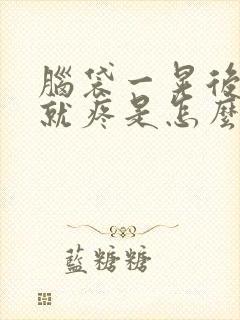 腦袋一晃後
就疼是怎麼
藍糖糖